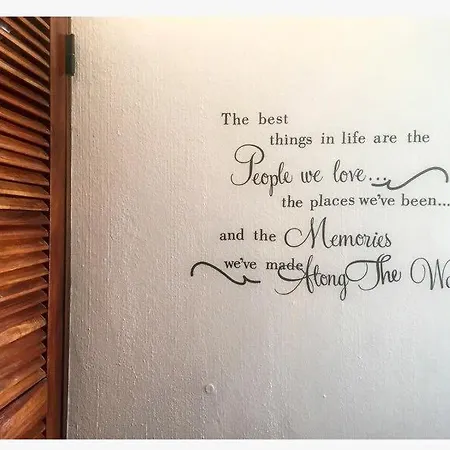 The best
things in life are the
People we love...
the places we've been...
and the Memories
we've made Along The